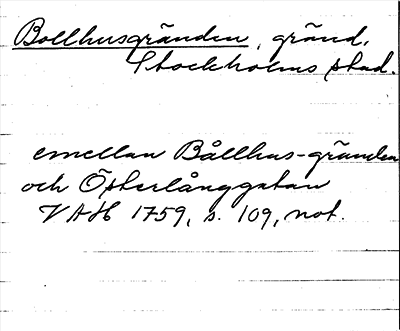 Bollhusgränden, gränd.
Stockholms stad.
emellan Bållhus-gränden
och Österlånggatan
VAH 1759, s. 109, not.